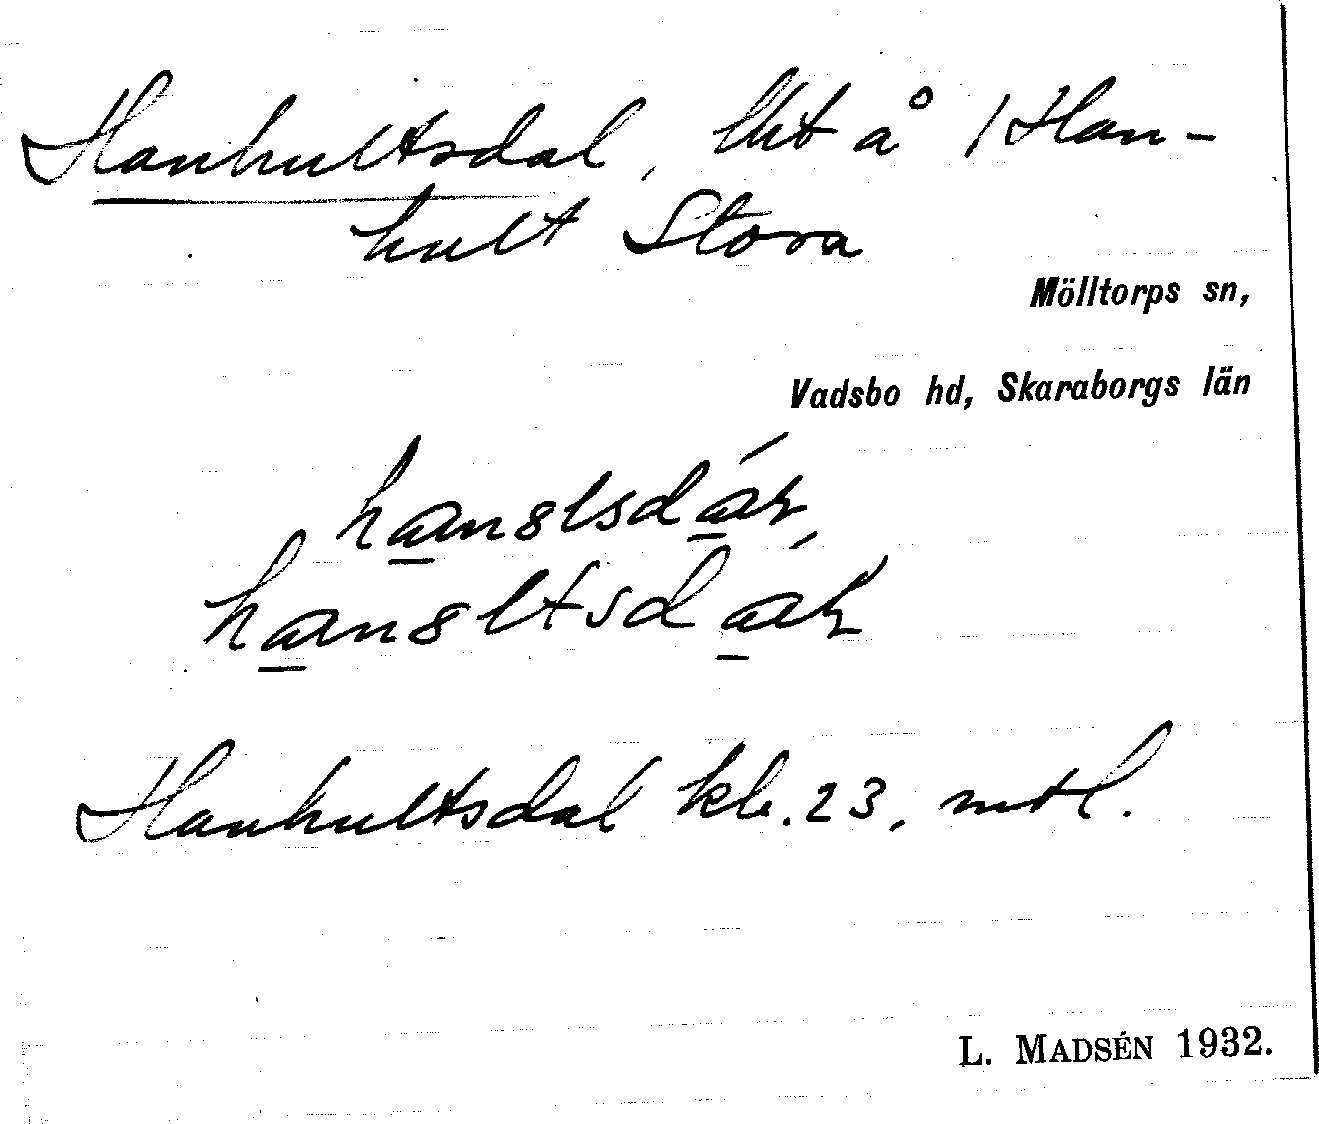 Hanhultsdal, lht å 1 Han-
hult Stora
Mölltorps sn,
Vadsbo hd, Skaraborgs län
Hanhultsdal kb. 23, mtl.
L. MADSÉN 1932.